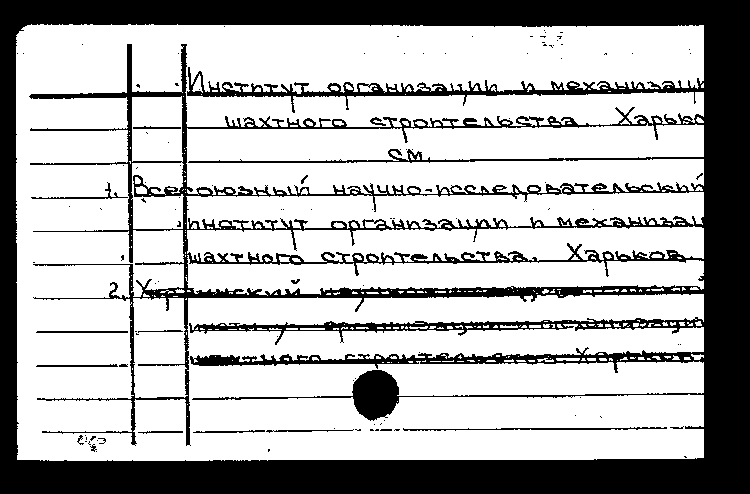 Институт организации и механизаци
шахтного строительства. Харько
см.
1. Всесоюзный научно-исследовательский
институт организации и механизац
шахтного строительства. Харьков.
2. Украинский научно-исследовательский
институт организации и механизации
шахтного строительства. Харьков.